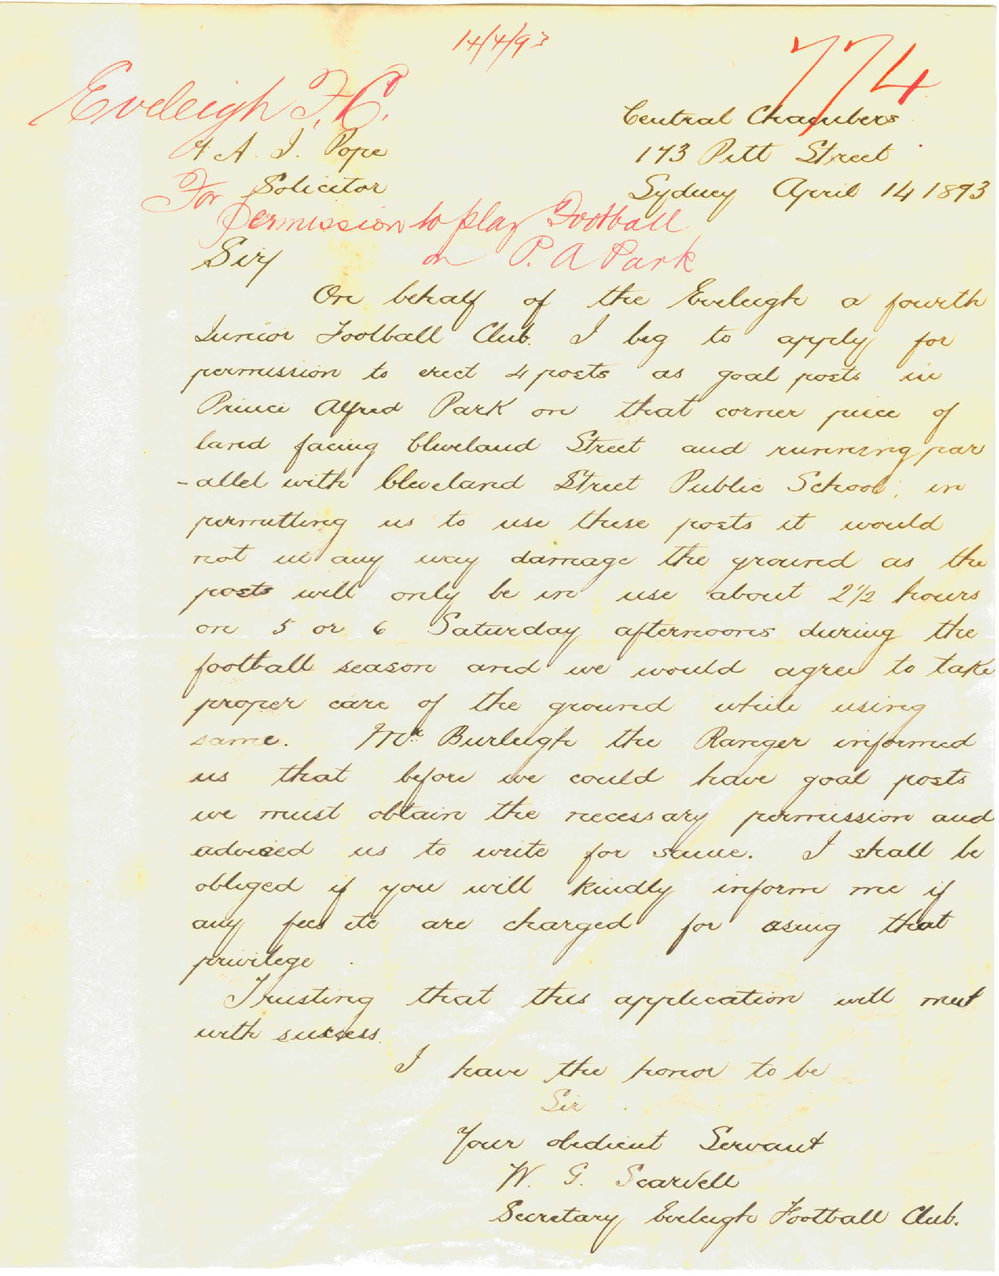 14/4/93
774
Eveleigh F. C.
Central Chambers
A. J. Pope
173 Pitt Street
Solicitor
Sydney April 14 1893
For permission to play Football
on P. A Park
Sir
On behalf of the Eveleigh a fourth
Junior Football Club. I beg to apply for
permission to erect 4 posts as goal posts in
Prince Alfred Park on that corner piece of
land facing Cleveland Street and running par
-allel with Cleveland Street Public School; in
permitting us to use these posts it would
not in any way damage the ground as the
posts will only be in use about 2½ hours
on 5 or 6 Saturday afternoons during the
football season and we would agree to take
proper care of the ground while using
same. Mr Burleigh the Ranger informed
us that before we could have goal posts
we must obtain the necessary permission and
advised us to write for same. I shall be
obliged if you will kindly inform me if
any fees etc are charged for using that
privilege.
Trusting that this application will meet
with success.
I have the honor to be
Sir
Your obedient Servant
W. G. Scarvell
Secretary Eveleigh Football Club.